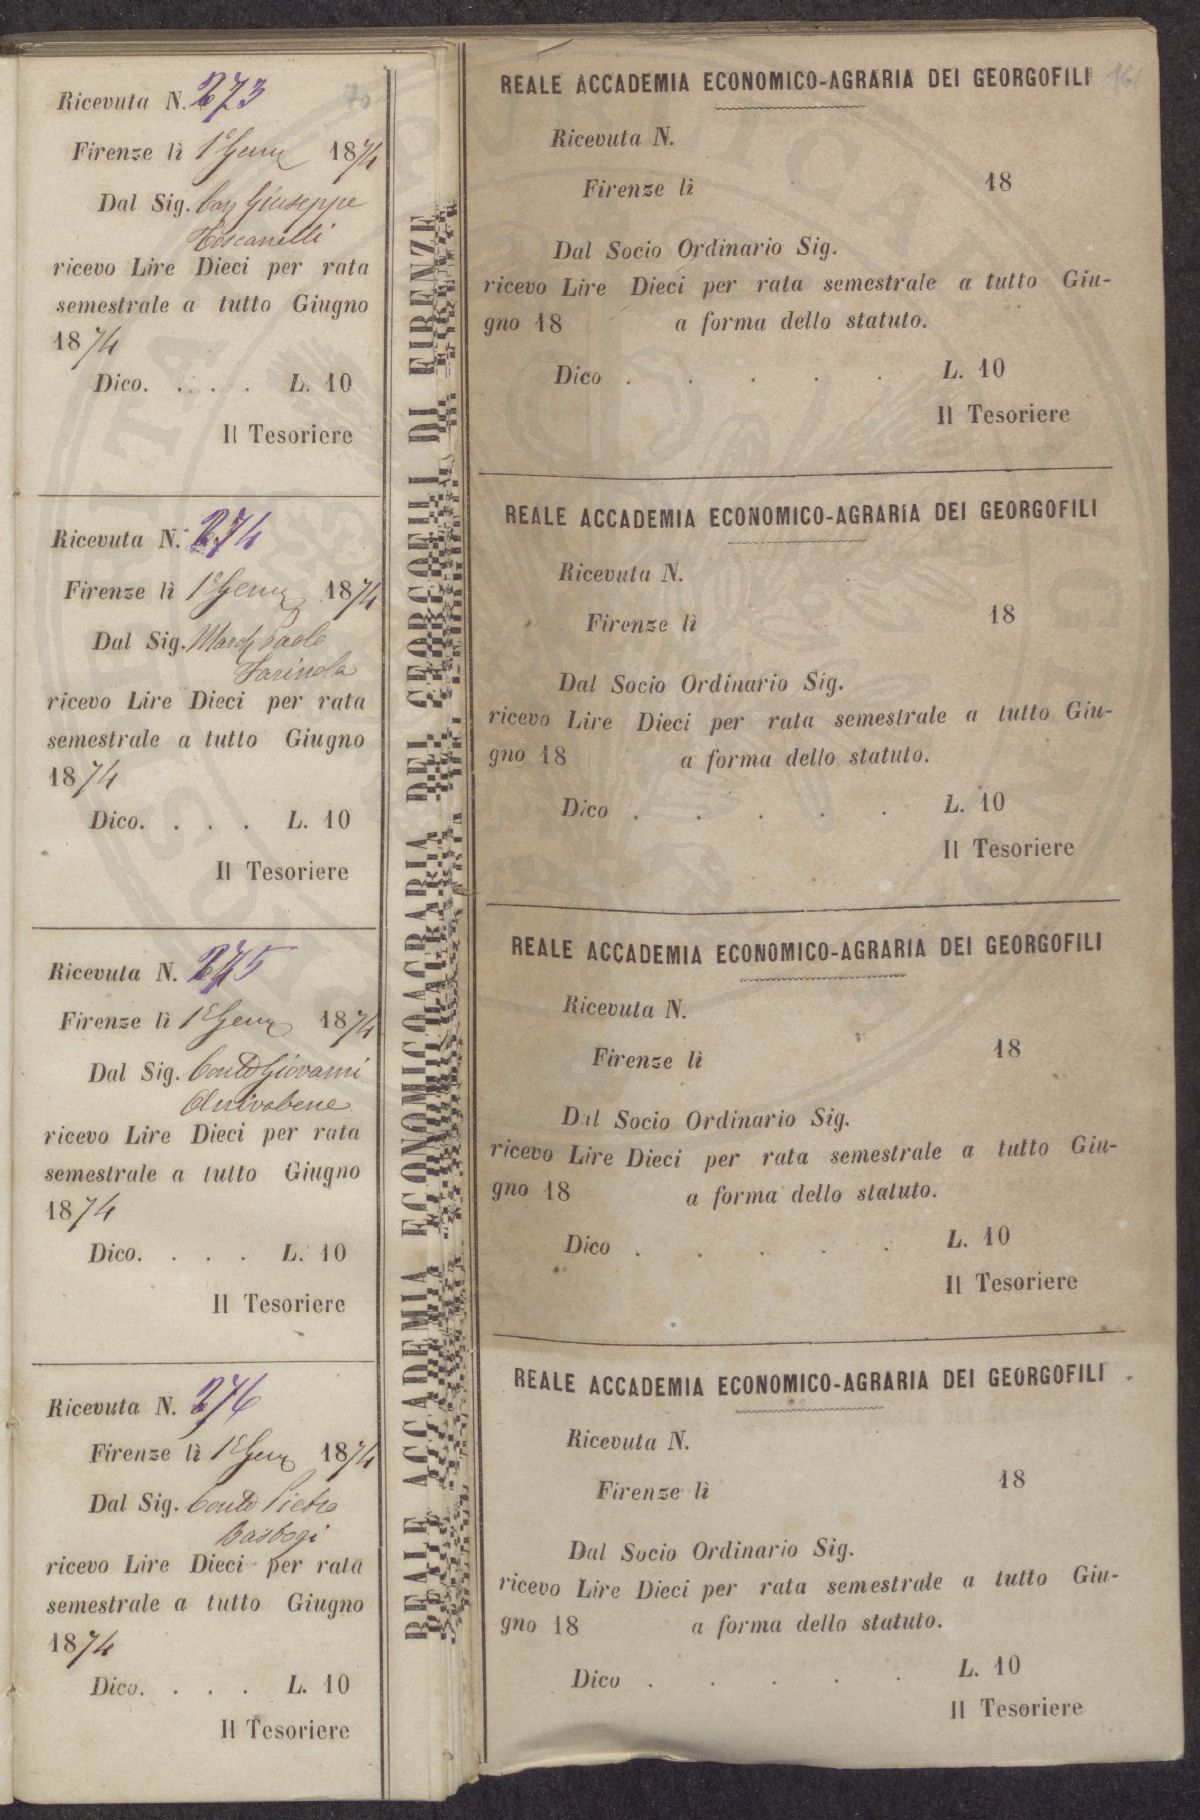 Ricevuta N. 273
Firenze lì 1° Genn 1874
Dal Sig. Cav Giuseppe
Toscanelli
ricevo Lire Dieci per rata
semestrale a tutto Giugno
1874
Dico. . . . . L. 10
Il Tesoriere
Ricevuta N. 274
Firenze lì 1° Genn 1874
Dal Sig. March Paolo
Farinola
ricevo Lire Dieci per rata
semestrale a tutto Giugno
1874
Dico. . . . L. 10
Il Tesoriere
Ricevuta N. 275
Firenze lì 1° Genn 1874
Dal Sig. Conte Giovanni
Arrivabene
ricevo Lire Dieci per rata
semestrale a tutto Giugno
1874
Dico. . . . L. 10
Il Tesoriere
Ricevuta N. 276
Firenze lì 1° Genn 1874
Dal Sig. Conte Pietro
Bastogi
ricevo Lire Dieci per rata
semestrale a tutto Giugno
1874
Dico. . . . L. 10
Il Tesoriere
REALE ACCADEMIA ECONOMICOAGRARIA DEI GEORGOFILI DI FIRENZE
REALE ACCADEMIA ECONOMICO-AGRARIA DEI GEORGOFILI
Ricevuta N.
Firenze lì 18
Dal Socio Ordinario Sig.
ricevo Lire Dieci per rata semestrale a tutto Giu-
gno 18 a forma dello statuto.
Dico . . . . . L. 10
Il Tesoriere
REALE ACCADEMIA ECONOMICO-AGRARIA DEI GEORGOFILI
Ricevuta N.
Firenze lì 18
Dal Socio Ordinario Sig.
ricevo Lire Dieci per rata semestrale a tutto Giu-
gno 18 a forma dello statuto.
Dico . . . . . L. 10
Il Tesoriere
REALE ACCADEMIA ECONOMICO-AGRARIA DEI GEORGOFILI
Ricevuta N.
Firenze lì 18
Dal Socio Ordinario Sig.
ricevo Lire Dieci per rata semestrale a tutto Giu-
gno 18 a forma dello statuto.
Dico . . . . . L. 10
Il Tesoriere
REALE ACCADEMIA ECONOMICO-AGRARIA DEI GEORGOFILI
Ricevuta N.
Firenze lì 18
Dal Socio Ordinario Sig.
ricevo Lire Dieci per rata semestrale a tutto Giu-
gno 18 a forma dello statuto.
Dico . . . . . L. 10
Il Tesoriere